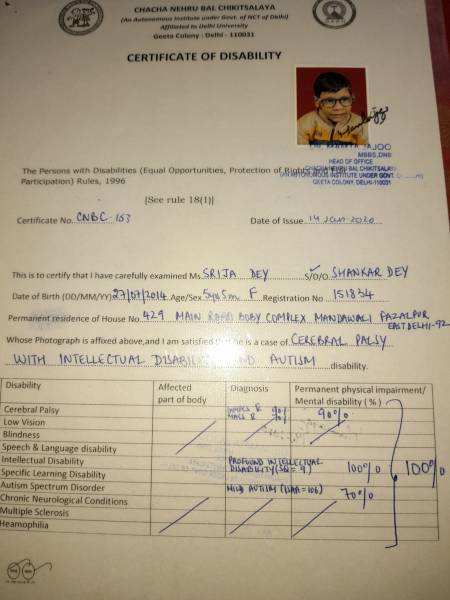 CHACHA NEHRU BAL CHIKITSALAYA
(An Autonomous Institute under Govt. of NCT of Delhi)
Affiliated to Delhi University
Geeta Colony : Delhi - 110031
CERTIFICATE OF DISABILITY
MBBS,DNB
HEAD OF OFFICE
CHACHA NEHRU BAL CHIKITSALAYA
(AN AUTONOMOUS INSTITUTE UNDER GOVT.
GEETA COLONY, DELHI-110031
The Persons with Disabilities (Equal Opportunities, Protection of Rights and Full
Participation) Rules, 1996
[See rule 18(1)]
Certificate No. CNBC-153 Date of Issue 14 Jan 2020
This is to certify that I have carefully examined Ms SRIJA DEY S/D/O SHANKAR DEY
Date of Birth (DD/MM/YY) 27/07/2014 Age/Sex 5yr 5m F Registration No 151834
Permanent residence of House No. 429 MAIN ROAD BOBY COMPLEX MANDAWALI FAZALPUR
EAST DELHI-92
Whose Photograph is affixed above,and I am satisfied that he is a case of CEREBRAL PALSY
WITH INTELLECTUAL DISABILITY AND AUTISM disability.
Disability Affected part of body Diagnosis Permanent physical impairment/ Mental disability (%)
Cerebral Palsy 90% 90%
Low Vision
Blindness
Speech & Language disability
Intellectual Disability PROFOUND INTELLECTUAL DISABILITY (SQ = 9) 100% 100%
Specific Learning Disability
Autism Spectrum Disorder MILD AUTISM (ISAA=106) 70%
Chronic Neurological Conditions
Multiple Sclerosis
Heamophilia